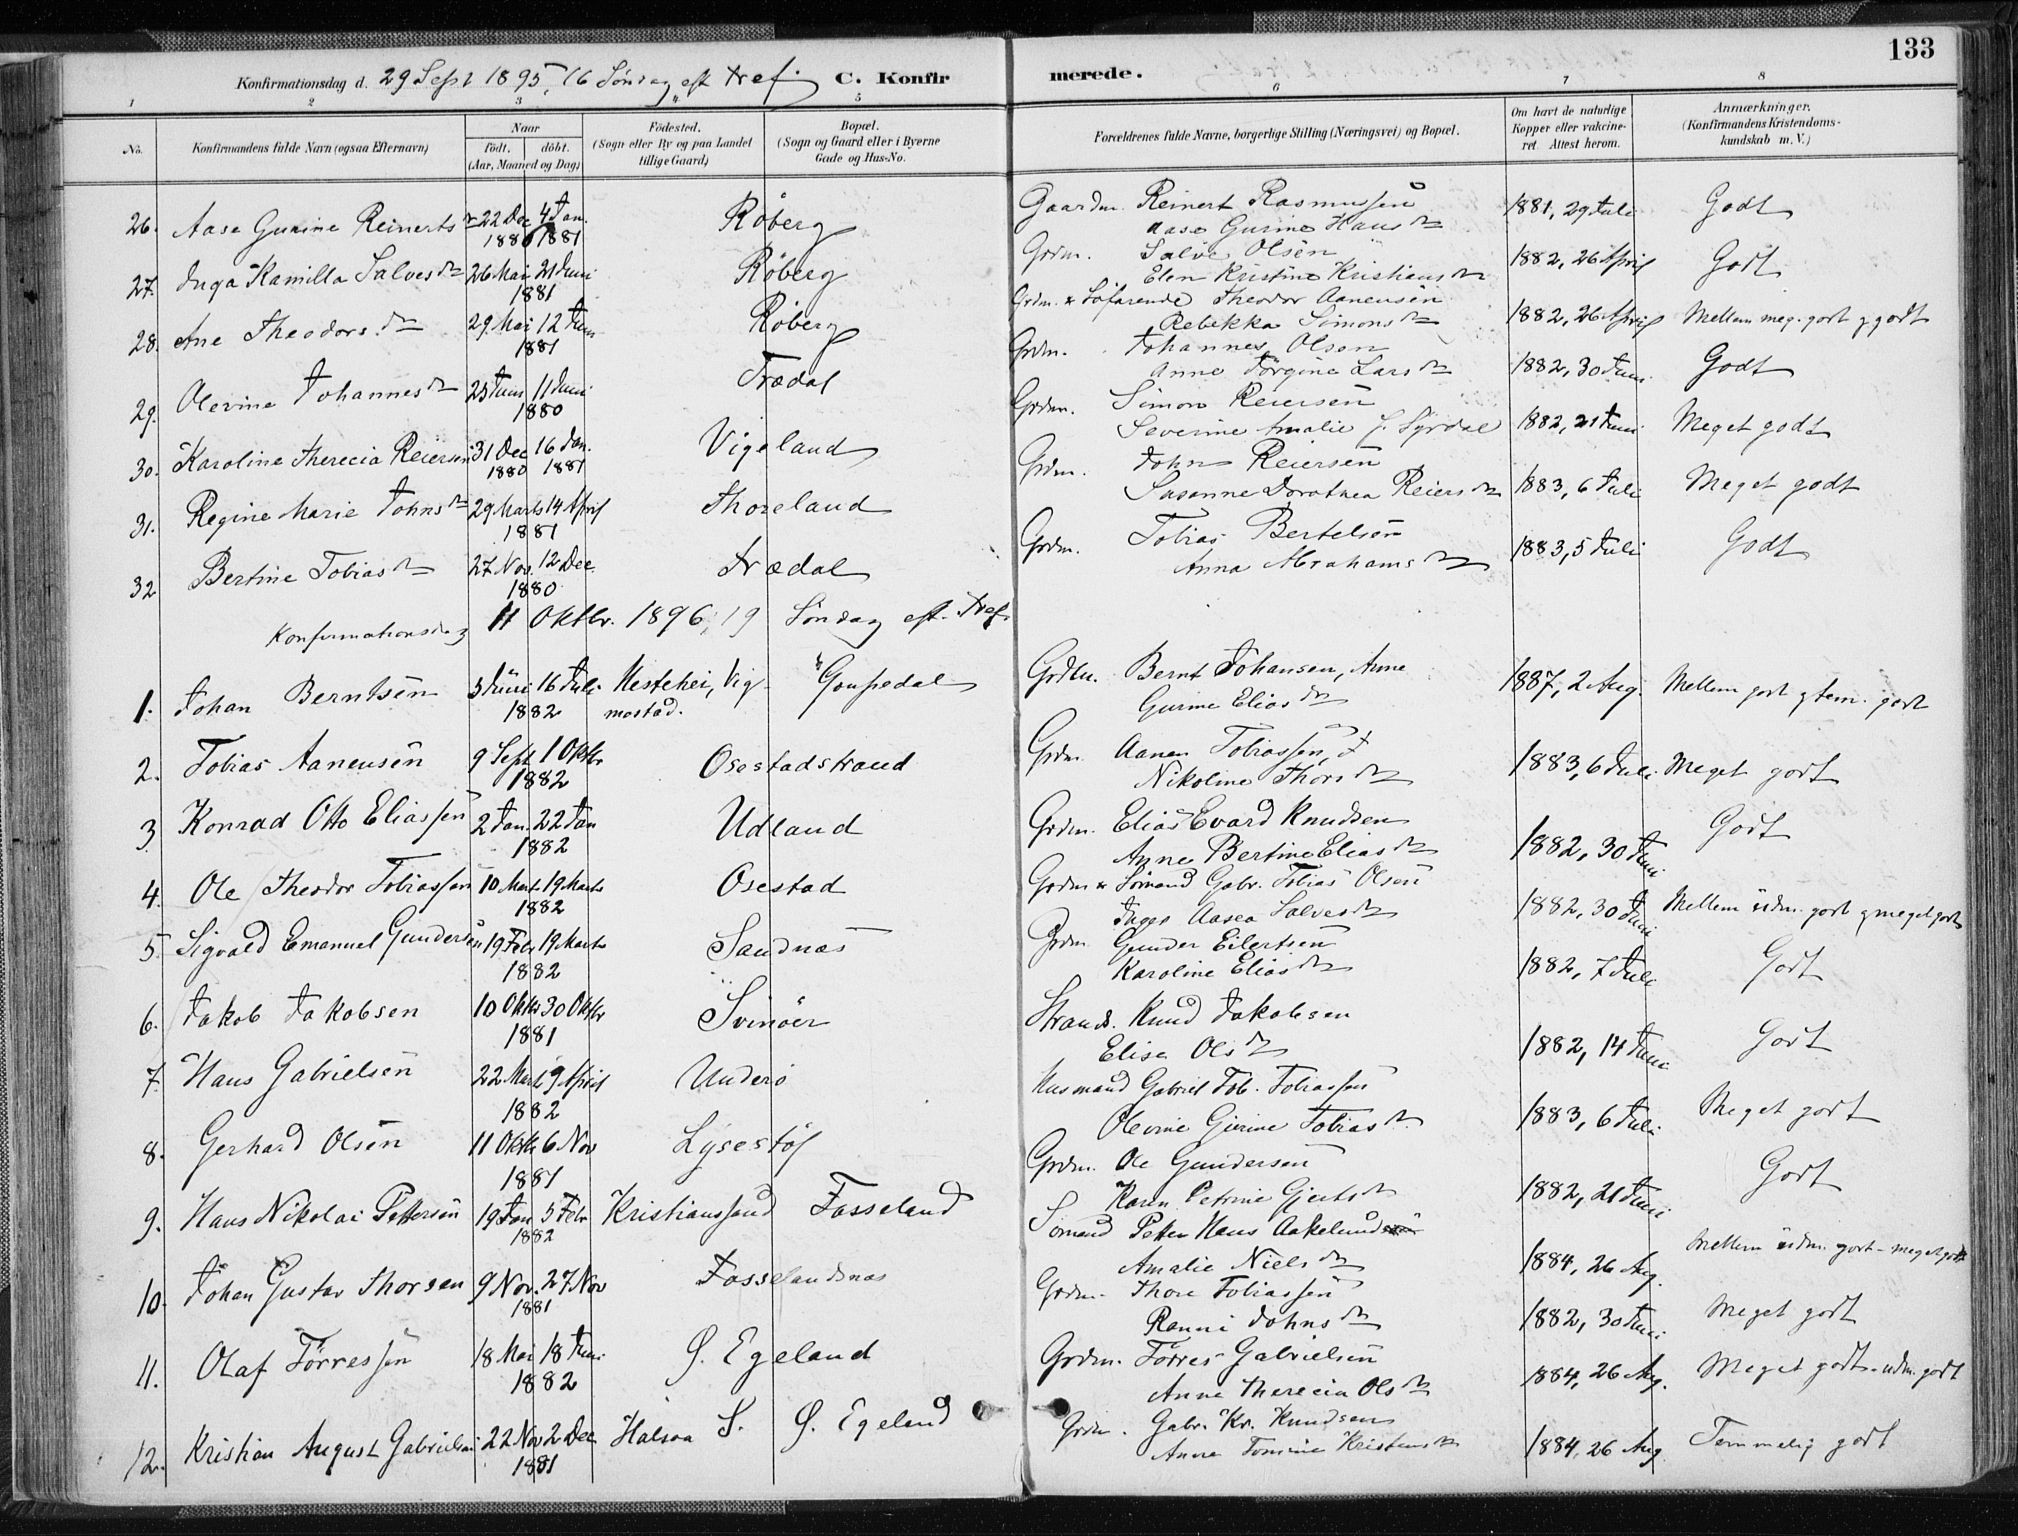 133
Konfirmationsdag d. 29 Sept 1895, 16 Söndag eft Tref. C. Konfirmerede.
1 2 3 5 6 7 8
No. Konfirmandens fulde Navn (ogsaa Efternavn) Naar födt. döbt. (Aar, Maaned og Dag) Födested. (Sogn eller By og paa Landet tillige Gaard) Bopæl. (Sogn og Gaard eller i Byerne Gade og Hus-No. Forældrenes fulde Navne, borgerlige Stilling (Næringsvei) og Bopæl. Om havt de naturlige Kopper eller vakcineret. Attest herom. Anmærkninger. (Konfirmandens Kristendomskundskab m. V.)
26. Aase Gurine Reinertsdr 22 Dec 1880 4 Jan. 1881 Röberg Gaardm. Reinert Rasmussen Aase Gurine Hansdr 1881, 29 Juli Godt
27. Inga Kamilla Salvesdr 26 Mai 21 Juni 1881 Röberg Grdm. Salve Olsen Elen Kristine Kristiansdr 1882, 26 April Godt
28. Ane Theodorsdr 29 Mai 12 Juni 1881 Röberg Grdm. & Söfarende Theodor Aanensen Rebekka Simonsdr 1882, 26 April Mellem meg. godt g godt
29. Olevine Johannesdr 11 Juni 1880 Trædal Grdm. Johannes Olsen Anne Jörgine Larsdr 1882, 30 Juni Godt
30. Karoline Therecia Reiersen 31 Dec 1880 16 Jan. 1881 Vigeland Grdm. Simon Reiersen Severine Amalie f. Syrdal 1882, 21 Juni Meget godt
31. Regine Marie Johnsdr 29 Marts 14 April 1881 Thoreland Grdm. John Reiersen Susanne Dorothea Reiersdr 1883, 6 Juli Meget godt
32 Bertine Tobiasdr 27 Nov. 12 Dec. 1880 Trædal Grdm. Tobias Bertelsen Anna Abrahamsdr 1883, 5 Juli Godt
Konfirmationsdag 11 Oktbr. 1896, 19 Söndag eft. Tref.
1. Johan Berntsen 3 Juni 16 Juli 1882 Hestehei, Vigmostad. Goupedal Grdm. Bernt Johansen, Anne Gurine Eliasdr 1887, 2 Aug. Mellem godt g tem. godt
2. Tobias Aanensen 9 Sept 1 Oktbr 1882 Osestadstrand Grdm. Aanen Tobiassen, Nikoline Thorsdr 1883, 6 Juli Meget godt
3 Konrad Otto Eliassen 2 Jan. 22 Jan 1882 Udland Grdm. Elias Evard Knudsen Anne Bertine Eliasdr 1882, 30 Juni Godt
4. Ole Theodor Tobiassen 10 Marts 19 Marts 1882 Osestad Grdm & Sömand Gabr. Tobias Olsen Inger Aasea Salvesdr 1882, 30 Juni Mellem udm. godt g meget godt
5. Sigvald Emanuel Gundersen 19 Febr 19 Marts 1882 Sandnæs Grdm. Gunder Eilertsen Karoline Eliasdr 1882, 7 Juli Godt
6. Jakob Jakobsen 10 Oktbr 30 Oktbr 1881 Svinöer Strands. Knud Jakobsen Elise Olsdr 1882, 14 Juni Godt
7. Hans Gabrielsen 22 Marts 9 April 1882 Underö Husmand Gabriel Tob. Tobiassen Olevine Gurine Tobiasdr. 1883, 6 Juli Meget godt
8. Gerhard Olsen 11 Oktbr 6 Nov 1881 Lysestöl Grdm. Ole Gundersen Karen Petrine Gjertsdr 1882, 21 Juni Godt
9. Hans Nikolai Pettersen 19 Jan 5 Febr 1882 Kristianssand Fasseland Sömand Petter Hans Aakelund Amalie Nielsdr 1884, 26 Aug. Mellem udm. godt - meget godt
10. Johan Gustav Thorsen 9 Nov. 27 Nov 1881 Fasselandsnæs Grdm. Thore Tobiassen Ranni Johnsdr 1882, 30 Juni Meget godt
11. Olaf Törressen 18 Mai 18 Juni 1882 Ö. Egeland Grdm. Törres Gabrielsen Anne Therecia Olsdr 1884, 26 Aug. Meget godt - udm. godt
12. Kristian August Gabrielsen 22 Nov 2 Dec 1881 Halsaa S. Ö. Egeland Grdm. Gabr. Kr. Knudsen Anne Tomine Kristensdr 1884, 26 Aug Temmelig godt